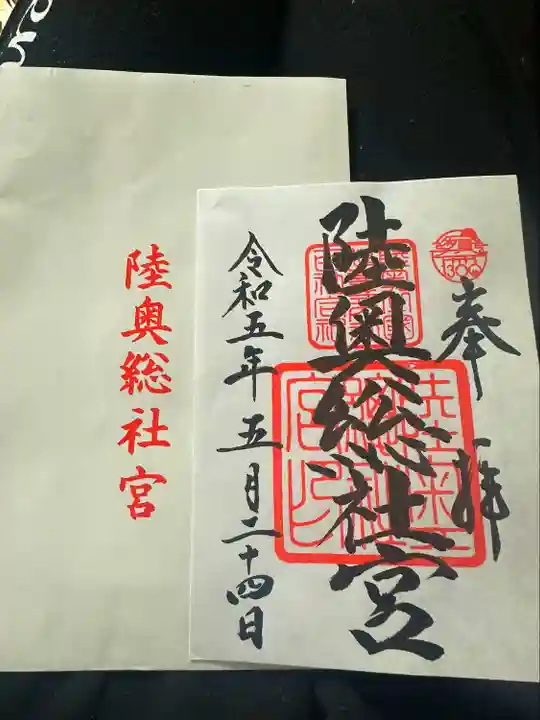 奉拝
陸奥総社宮
令和五年五月二十四日
陸奥総社宮
1300